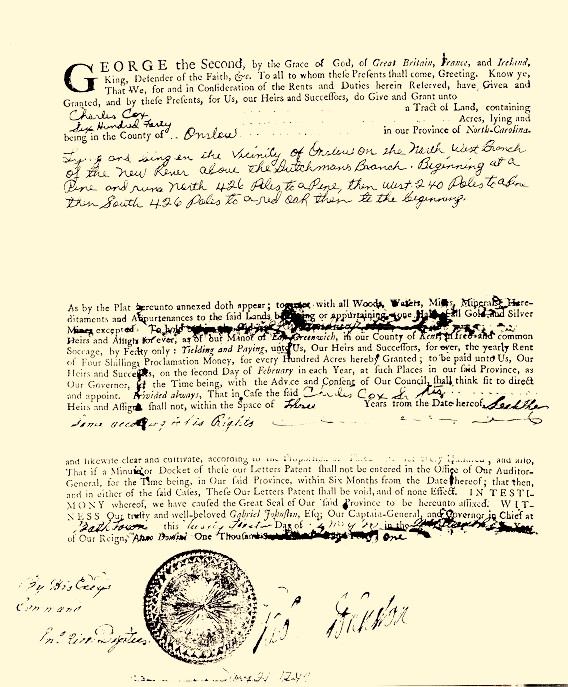 GEORGE the Second, by the Grace of God, of Great Britain, France, and Ireland,
King, Defender of the Faith, &c. To all to whom these Presents shall come, Greeting. Know ye,
That We, for and in Consideration of the Rents and Duties herein Reserved, have Given and
Granted, and by these Presents, for Us, our Heirs and Successors, do Give and Grant unto
Charles Cox a Tract of Land, containing
Six Hundred Forty Acres, lying and
being in the County of Onslow in our Province of North-Carolina.
and being in the Vicinity of Onslow on the North West Branch
of the New River above the Dutchmans Branch. Beginning at a
Pine and runs North 426 Poles to a Pine, then West 240 Poles to a Pine
then South 426 Poles to a red oak then to the beginning.
As by the Plat hereunto annexed doth appear; together with all Woods, Waters, Mines, Minerals, Here-
ditaments and Appurtenances to the said Lands belonging or appurtaining, one Half of all Gold and Silver
Mines excepted. To hold
Heirs and Assigns for ever, as of our Manor of East Greenwich, in our County of Kent, in free and common
Soccage, by Fealty only: Yielding and Paying, unto Us, Our Heirs and Successors, for ever, the yearly Rent
of Four Shillings Proclamation Money, for every Hundred Acres hereby Granted; to be paid unto Us, Our
Heirs and Successors, on the second Day of February in each Year, at such Places in our said Province, as
Our Governor, at the Time being, with the Advice and Consent of Our Council, shall think fit to direct
and appoint. Provided always, That in Case the said Charles Cox his
Heirs and Assigns shall not, within the Space of three Years from the Date hereof
same according to his Rights
and likewise clear and cultivate, according to the and also,
That if a Minute or Docket of these our Letters Patent shall not be entered in the Office of Our Auditor-
General, for the Time being, in Our said Province, within Six Months from the Date hereof; that then,
and in either of the said Cases, These Our Letters Patent shall be void, and of none Effect. IN TESTI-
MONY whereof, we have caused the Great Seal of Our said Province to be hereunto affixed. WIT-
NESS Our trusty and well-beloved Gabriel Johnston, Esq; Our Captain-General, and Governor in Chief at
Bath Town this Day of in the
of Our Reign, Anno Domini One Thousand one
By His Excys
Command